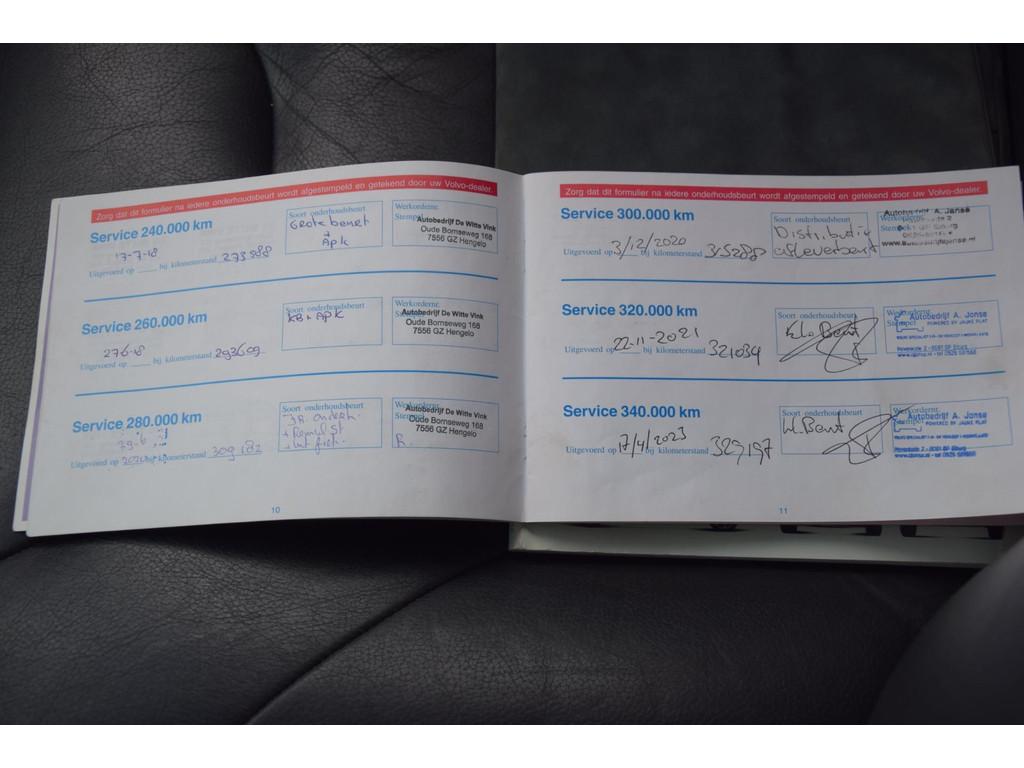 Zorg dat dit formulier na iedere onderhoudsbeurt wordt afgestempeld en getekend door uw Volvo-dealer.
Service 240.000 km
17-7-18
Uitgevoerd op bij kilometerstand 273588
Soort onderhoudsbeurt
Grote beurt
+
Apk
Werkordernr.
Stempel
Autobedrijf De Witte Vink
Oude Bornseweg 168
7556 GZ Hengelo
Service 260.000 km
276-18
Uitgevoerd op bij kilometerstand 293609
Soort onderhoudsbeurt
KB + APK
Werkordernr.
Stempel
Autobedrijf De Witte Vink
Oude Bornseweg 168
7556 GZ Hengelo
Service 280.000 km
Uitgevoerd op 2020 bij kilometerstand 309182
Soort onderhoudsbeurt
JR. Onderh.
+ Remvl St
Werkordernr.
Stempel
Autobedrijf De Witte Vink
Oude Bornseweg 168
7556 GZ Hengelo
R.
10
Zorg dat dit formulier na iedere onderhoudsbeurt wordt afgestempeld en getekend door uw Volvo-dealer.
Service 300.000 km
Uitgevoerd op 3/12/2020 bij kilometerstand 315288
Soort onderhoudsbeurt
Distributie
afleverbeurt
Werkordernr.
Stempel
Autobedrijf A. Jonse
Service 320.000 km
Uitgevoerd op 22-11-2021 bij kilometerstand 321034
Soort onderhoudsbeurt
Kl. Beurt
Werkordernr.
Stempel
Autobedrijf A. Jonse
Service 340.000 km
Uitgevoerd op 17/4/2023 bij kilometerstand 329,197
Soort onderhoudsbeurt
Kl. Beurt
Werkordernr.
Stempel
Autobedrijf A. Jonse
11